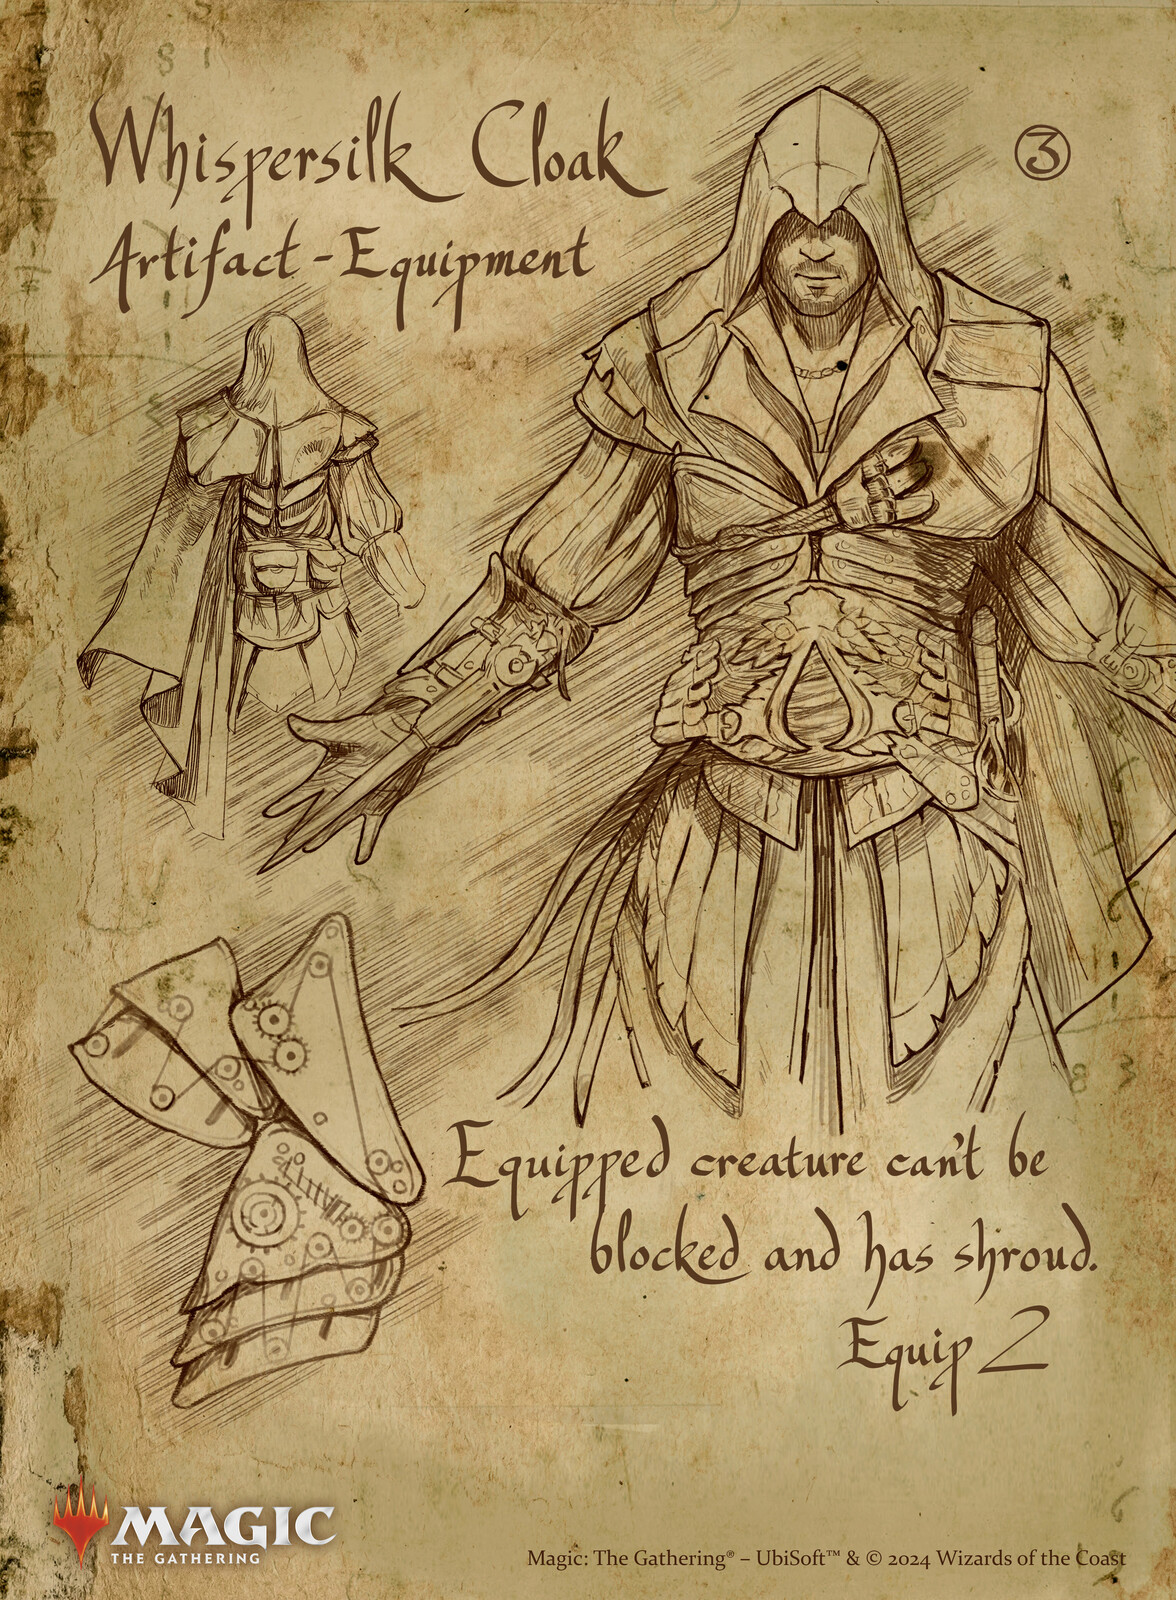 Whispersilk Cloak
3
Artifact - Equipment
Equipped creature can't be
blocked and has shroud.
Equip 2
MAGIC
THE GATHERING
Magic: The Gathering® – UbiSoft™ & © 2024 Wizards of the Coast